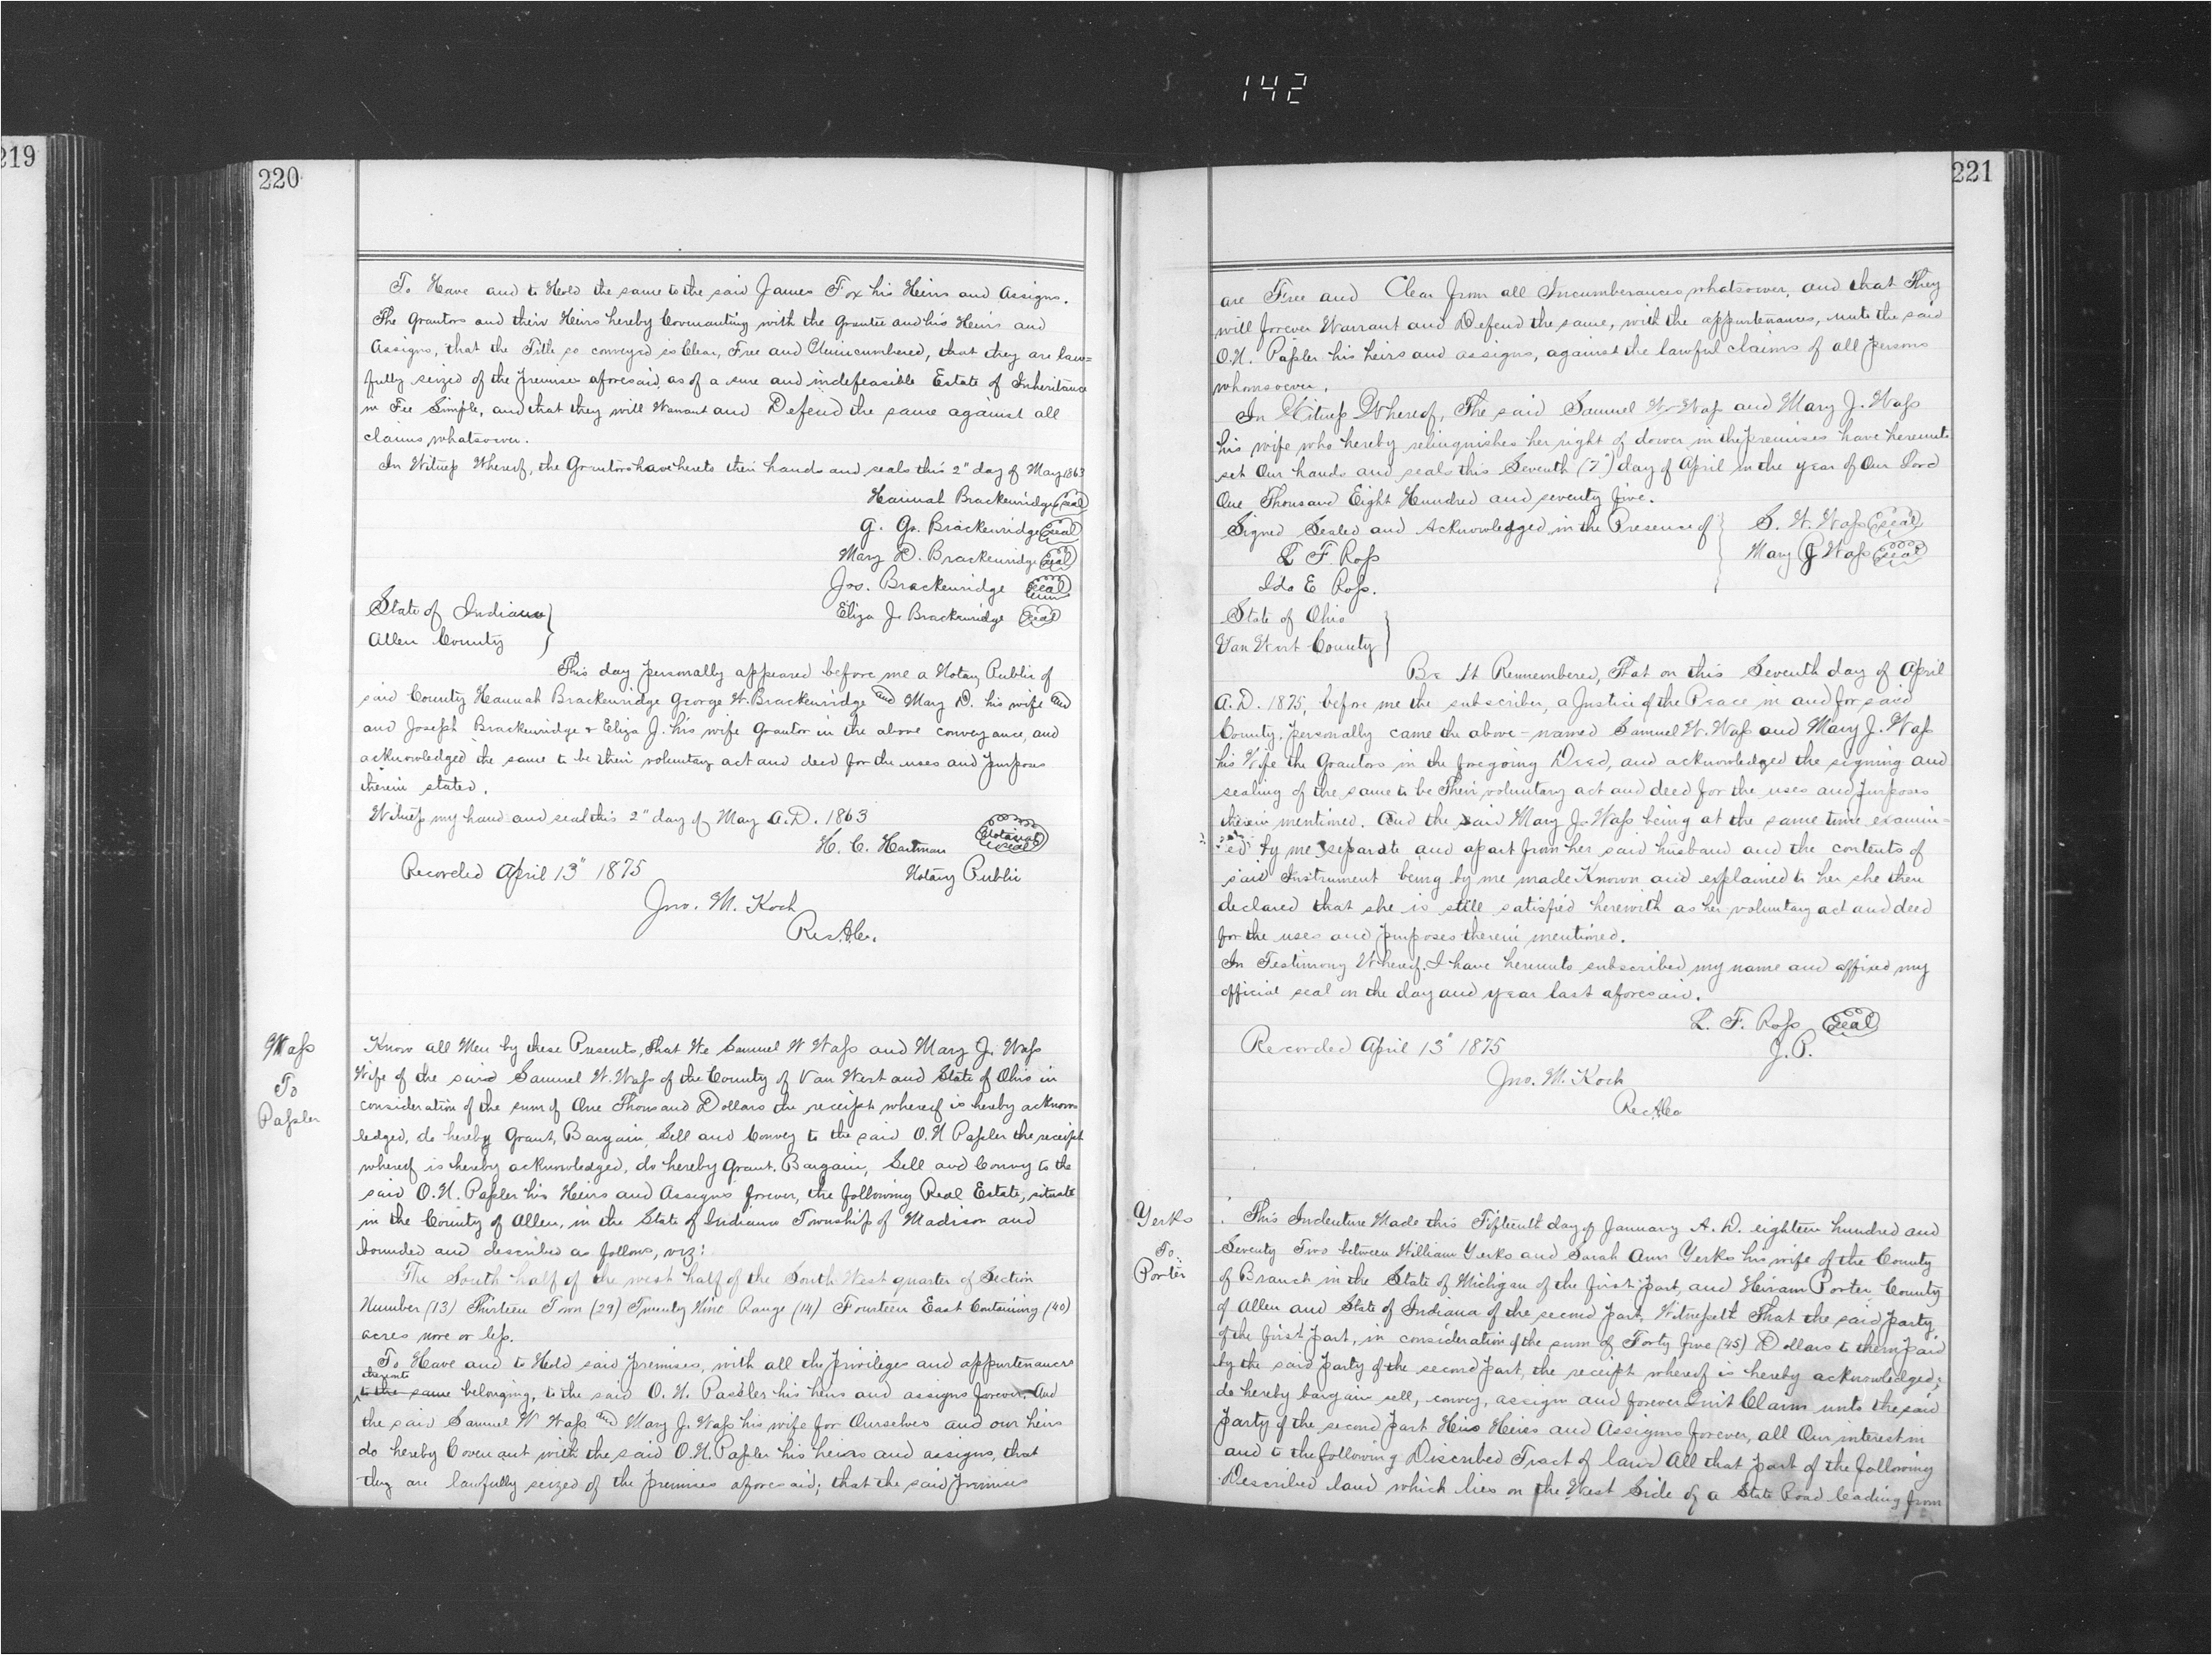 142
219
220
To Have and to Hold the same to the said James Fox his Heirs and Assigns.
The Grantors and their Heirs hereby Covenanting with the Grantee and his Heirs and
Assigns, that the Title so conveyed is Clear, Free and Unincumbered, that they are law=
fully seized of the premises aforesaid, as of a sure and indefeasible Estate of Inheritance
in Fee Simple, and that they will Warrant and Defend the same against all
claims whatsoever.
In Witneſs Whereof, the Grantors have hereto their hands and seals this 2" day of May 1863
Hannah Brackenridge seal
G. W. Brackenridge seal
Mary D. Brackenridge seal
Jos. Brackenridge seal
Eliza J. Brackenridge seal
State of Indiana
Allen County
This day personally appeared before me a Notary Public of
said County Hannah Brackenridge George W. Brackenridge and Mary D. his wife and
and Joseph Brackenridge & Eliza J. his wife Grantor in the above conveyance, and
acknowledged the same to be their voluntary act and deed for the uses and purposes
therein stated.
Witneſs my hand and seal this 2" day of May A.D. 1863
H. C. Hartman Notarial seal
Notary Public
Recorded April 13" 1875
Jno. M. Koch
Rec. A. Co.
Waſs
To
Paſsler
Know all Men by these Presents, That We Samuel W Waſs and Mary J. Waſs
Wife of the said Samuel W. Waſs of the County of Van Wert and State of Ohio in
consideration of the sum of One Thousand Dollars the receipt whereof is hereby acknow
ledged, do hereby Grant, Bargain, Sell and Convey to the said O. N. Paſsler the receipt
whereof is hereby acknowledged, do hereby Grant, Bargain, Sell and Convey to the
said O. N. Paſsler his Heirs and Assigns forever, the following Real Estate, situate
in the County of Allen, in the State of Indiana Township of Madison and
bounded and described as follows, viz:
The South half of the west half of the South West quarter of Section
Number (13) Thirteen Town (29) Twenty Nine Range (14) Fourteen East Containing (40)
acres more or leſs.
To Have and to Hold said premises, with all the privileges and appurtenances
thereunto
to the same belonging, to the said O. N. Passler his heirs and assigns forever. And
the said Samuel W Waſs and Mary J. Waſs his wife for Ourselves and our heirs
do hereby Covenant with the said O. N. Paſsler his heirs and assigns, that
they are lawfully seized of the premises aforesaid; that the said premises
221
are Free and Clear from all Incumberances whatsoever, and that They
will forever Warrant and Defend the same, with the appurtenances, unto the said
O. N. Paſsler his heirs and assigns, against the lawful claims of all persons
whomsoever.
In Witneſs Whereof, The said Samuel W Waſs and Mary J. Waſs
his wife who hereby relinquishes her right of dower in the premises have hereunto
set Our hands and seals this Seventh (7") day of April in the year of Our Lord
One Thousand Eight Hundred and seventy five.
Signed Sealed and Acknowledged in the Presence of S. W. Waſs seal
L F. Roſs Mary J Waſs seal
Ida E Roſs.
State of Ohio
Van Wert County
Be It Remembered, That on this Seventh day of April
A.D. 1875, before me the subscriber, a Justice of the Peace in and for said
County, personally came the above-named Samuel W. Waſs and Mary J. Waſs
his Wife the Grantors in the foregoing Deed, and acknowledged the signing and
sealing of the same to be Their voluntary act and deed for the uses and purposes
therein mentioned. And the said Mary J. Waſs being at the same time examin=
ed by me separate and apart from her said husband and the contents of
said Instrument being by me made Known and explained to her she then
declared that she is still satisfied herewith as her voluntary act and deed
for the uses and purposes therein mentioned.
In Testimony Whereof, I have hereunto subscribed my name and affixed my
official seal on the day and year last aforesaid.
L. F. Roſs seal
J. P.
Recorded April 13" 1875
Jno. M. Koch
Rec A Co
Yerks
To
Porter
This Indenture Made this Fifteenth day of January A. D. eighteen hundred and
Seventy Two between William Yerks and Sarah Ann Yerks his wife of the County
of Branch in the State of Michigan of the first part, and Hiram Porter County
of Allen and State of Indiana of the second part, Witneſseth That the said party
of the first part, in consideration of the sum of Forty Five (45) Dollars to them paid
by the said party of the second part, the receipt whereof is hereby acknowledged;
do hereby bargain sell, convey, assign and forever Quit Claim unto the said
party of the second part His Heirs and Assigns forever, all Our interest in
and to the following Discribed Tract of land All that part of the following
Described land which lies on the West Side of a State Road leading from